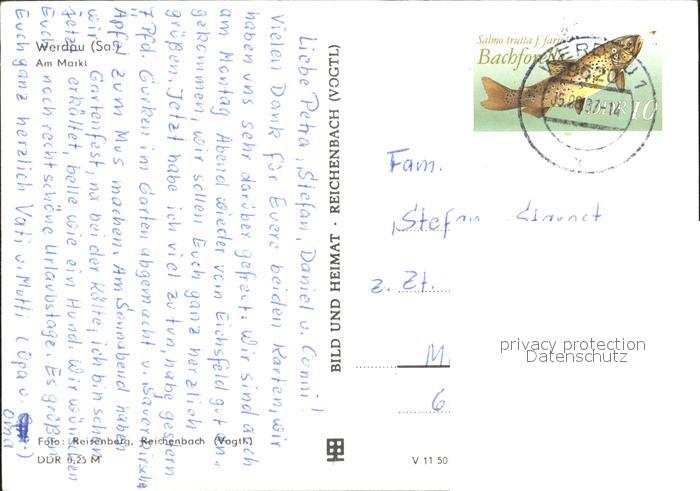 Werdau (Sa.)
Am Markt
Liebe Petra, Stefan, Daniel u. Conni!
Vielen Dank für Euere beiden Karten, wir
haben uns sehr darüber gefreut. Wir sind auch
am Montag Abend wieder vom Eichsfeld gut an-
gekommen, wir sollen Euch ganz herzlich
grüßen. Jetzt habe ich viel zu tun, habe gestern
7 Pfd. Gurken im Garten abgemacht u. Sauerkirschen
Äpfel zum Mus machen. Am Sonnabend haben
wir Gartenfest, nx bei der Kälte, ich bin schon
jetzt erkältet, belle wie ein Hund. Wir wünschen
Euch noch recht schöne Urlaubstage. Es grüßen
Euch ganz herzlich Vati u. Mutti (Opa u.
Oma)
Foto: Reisenberg, Reichenbach (Vogtl)
DDR 0,25 M
BILD UND HEIMAT · REICHENBACH (VOGTL)
V 11 50
Salmo trutta f. fario
Bachforelle
DDR 10
WERDAU 1
Fam.
Stefan
z. Zt.
M
6
privacy protection
Datenschutz